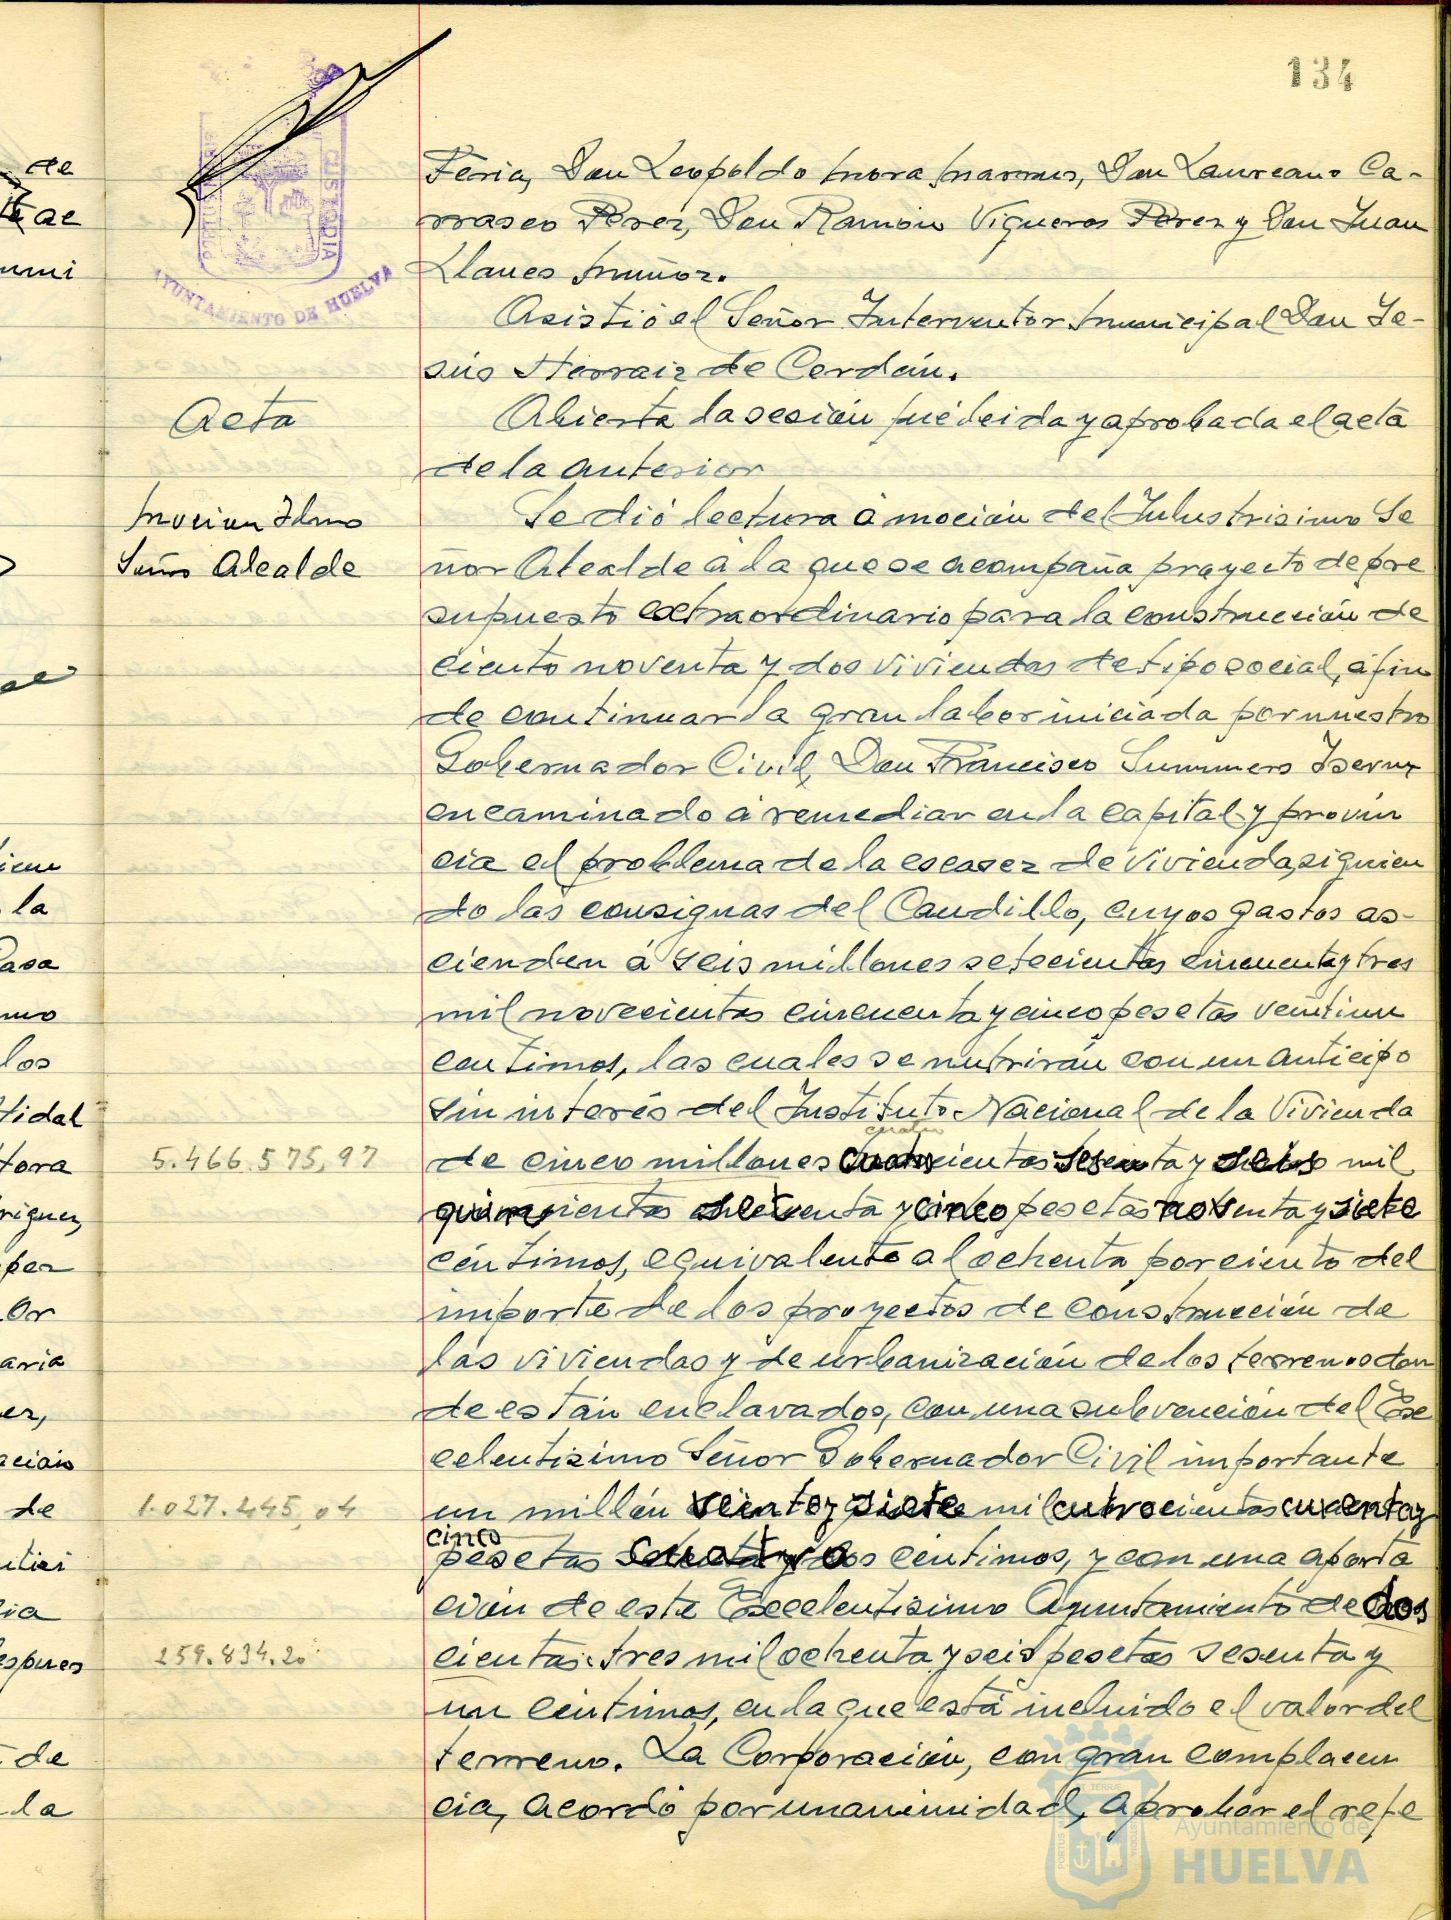 134
PORTUS MARIS
CUSTODIA
AYUNTAMIENTO DE HUELVA
Feria, Don Leopoldo Mora Marmus, Don Laureano Ca-
rrasco Pérez, Don Ramón Vigueras Pérez y Don Juan
Llanes Muñoz.
Asistió el Señor Interventor Municipal Don Je-
sús Herraiz de Cerdán.
Acta
Abierta la sesión fué leida y aprobada el acta
de la anterior
Mocion Ilmo
Señor Alcalde
Se dió lectura á moción del Ilustrisimo Se
ñor Alcalde á la que se acompaña proyecto de pre
supuesto extraordinario para la construcción de
ciento noventa y dos viviendas de tipo social, á fin
de continuar la gran labor iniciada por nuestro
Gobernador Civil, Don Francisco Summers Isern
encaminado á remediar en la capital y provin
cia el problema de la escasez de vivienda, siguien
do las consignas del Caudillo, cuyos gastos as-
cienden á seis millones setecientas cincuenta y tres
mil novecientas cincuenta y cinco pesetas veintiun
centimos, las cuales se nutrirán con un anticipo
sin interés del Instituto Nacional de la Vivienda
cuatro
5.466.575,97
de cinco millones cuatrocientas sesenta y seis mil
quinientas setenta y cinco pesetas noventa y siete
céntimos, equivalente al ochenta por ciento del
importe de los proyectos de construcción de
las viviendas y de urbanización de los terrenos don
de están enclavados, con una subvención del Exc
celentisimo Señor Gobernador Civil importante
1.027.245,04
un millón veinte y siete mil cuarenta y
cinco
pesetas cuatro centimos, y con una aporta
ción de este Excelentisimo Ayuntamiento de dos
259.834.20
cientas tres mil ochenta y seis pesetas sesenta y
un céntimos, en la que está incluido el valor del
terreno. La Corporación, con gran complacen
cia, acordó por unanimidad, aprobar el refe
de
la
Casa
los
Vidal
de
de
la
Ayuntamiento de
HUELVA